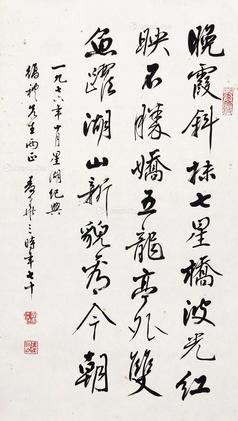 晚霞斜抹七星橋波光紅
映不勝嬌五龍亭外雙
魚躍湖山新貌看今朝
一九七六年十月星湖紀興
先生兩正
時年七十